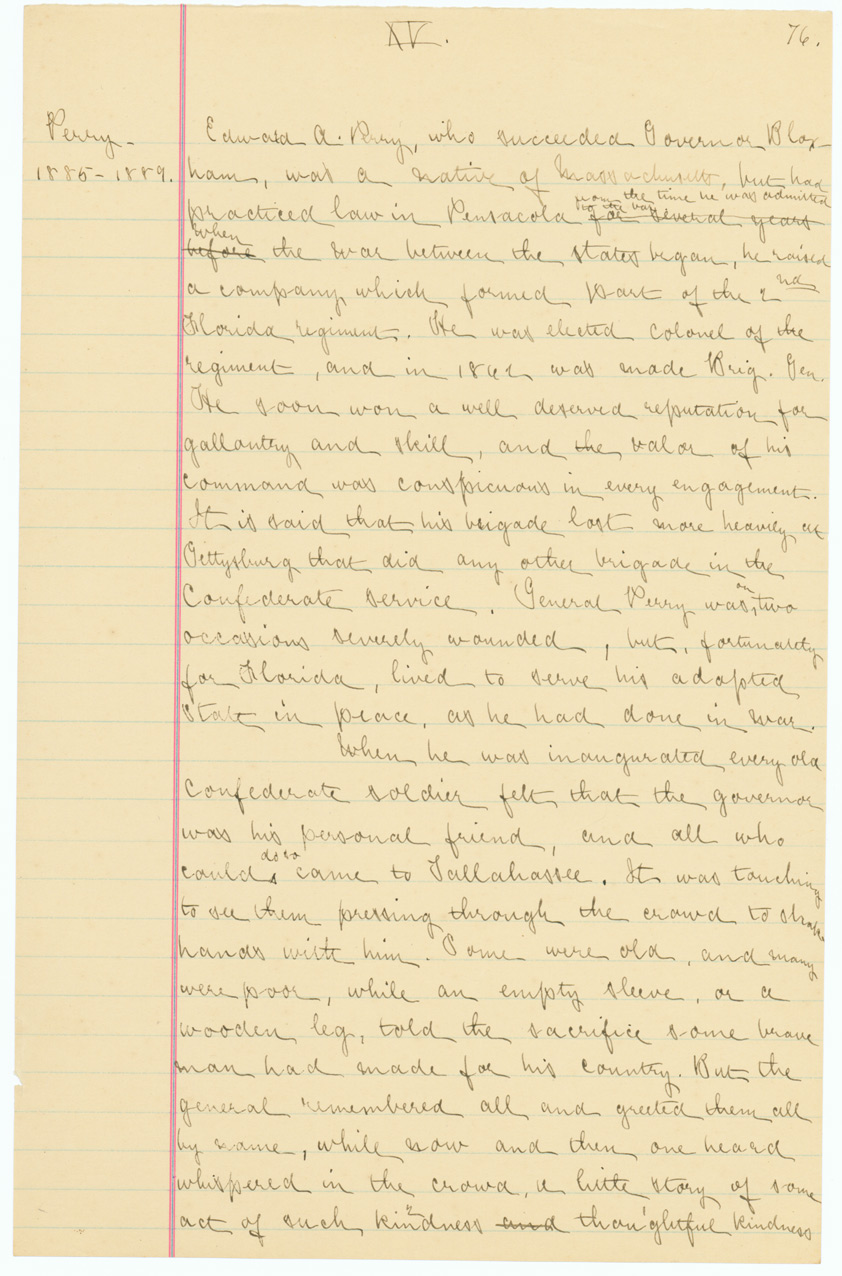 XV.
76.
Perry-
1885-1889.
Edward A. Perry, who succeeded Governor Blox-
ham, was a native of Massachusetts, but had
from the time he was admitted
to the bar
practiced law in Pensacola for several years
When
before the war between the states began, he raised
a company which formed part of the 2nd
Florida regiment. He was elected colonel of the
regiment, and in 1862 was made Brig. Gen.
He soon won a well deserved reputation for
gallantry and skill, and the valor of his
command was conspicuous in every engagement.
It is said that his brigade lost more heavily at
Gettysburg that did any other brigade in the
on
Confederate service. General Perry was, two
occasions severely wounded, but, fortunately
for Florida, lived to serve his adopted
State in peace, as he had done in war.
When he was inaugurated every old
Confederate soldier felt that the governor
was his personal friend, and all who
do so
could came to Tallahassee. It was touching
to see them pressing through the crowd to shake
hands with him. Some were old, and many
were poor, while an empty sleeve, or a
wooden leg, told the sacrifice some brave
man had made for his country. But the
general remembered all and greeted them all
by name, while now and then one heard
whispered in the crowd, a little story of some
act of such kindness and thoughtful kindness